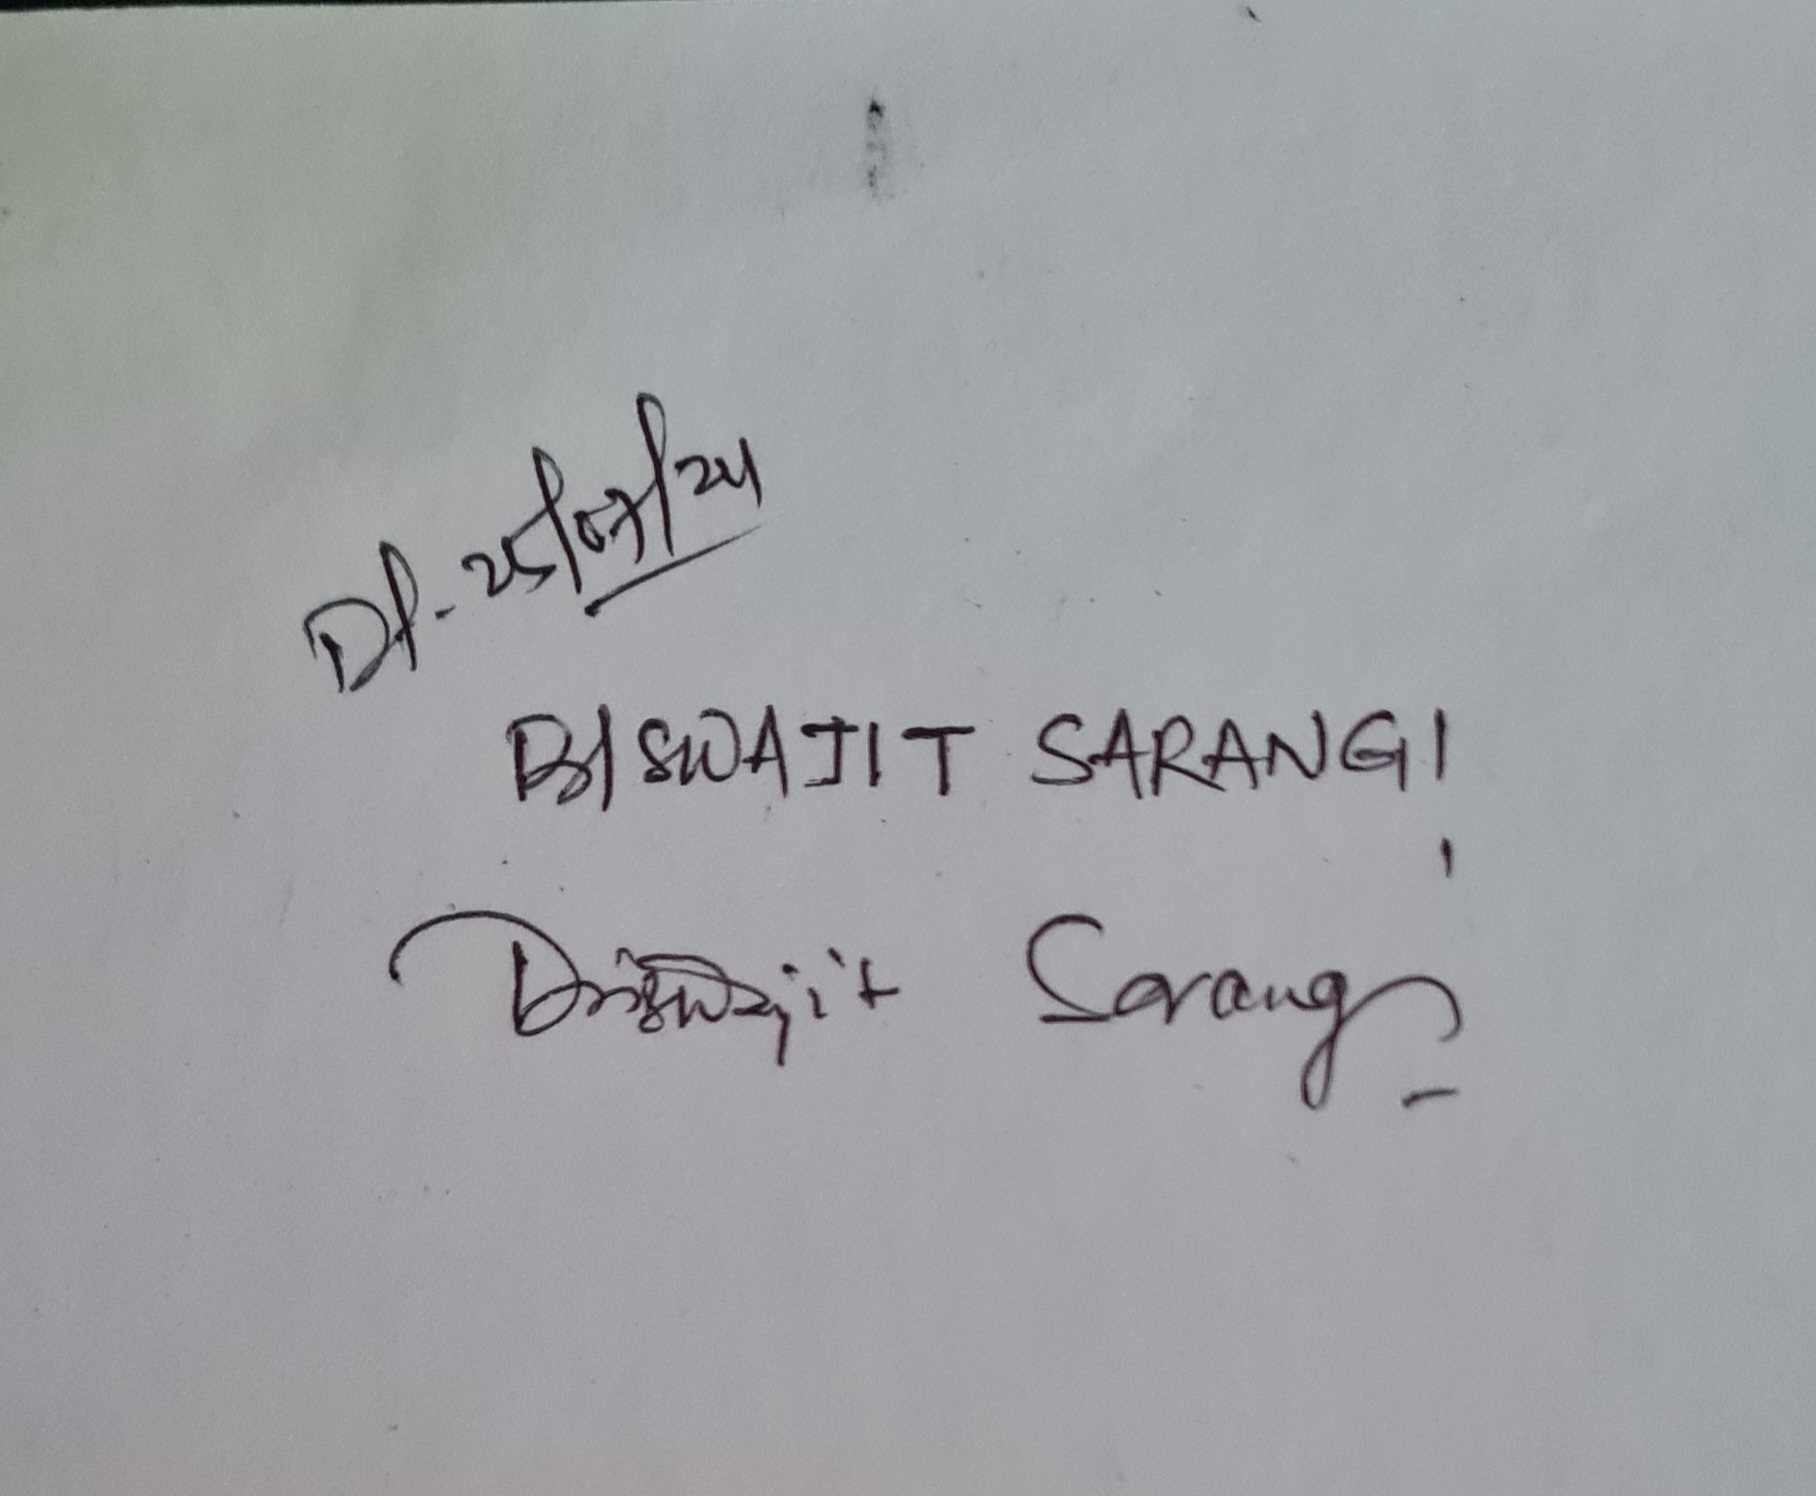 Dt-25/07/24
BISWAJIT SARANGI
Biswajit Sarangi